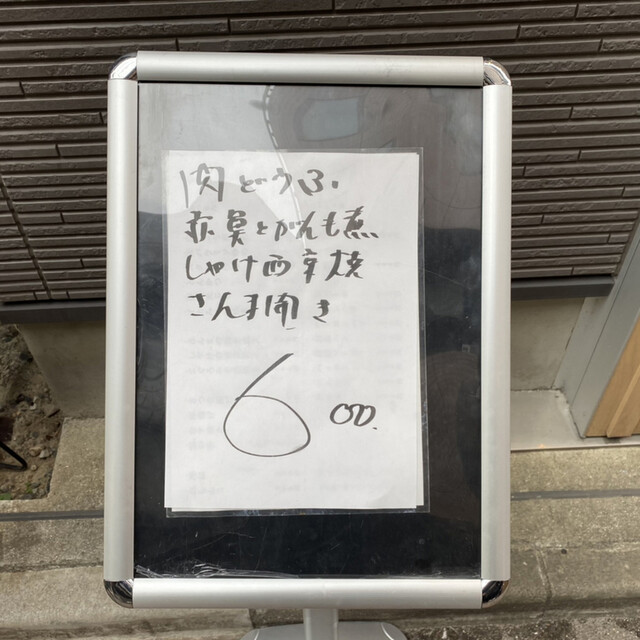 肉どうふ
赤魚とがんも煮
しゃけ西京焼
さんま開き
600.